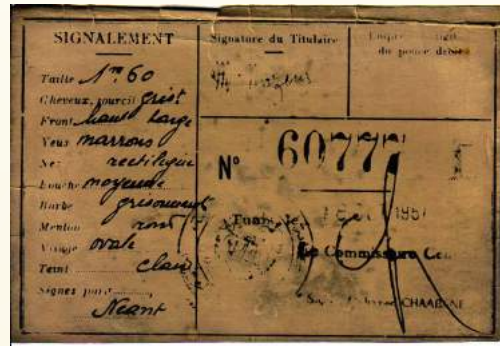 SIGNALEMENT
Taille 1m60
Cheveux, sourcil gris
Front haut large
Yeux marrons
Nez rectiligne
Bouche moyenne
Barbe grisonnant
Menton rond
Visage ovale
Teint clair
Signes part
Néant
Signature du Titulaire
du pouce droit
N° 60777
Tunis, le
Le Commissaire
CHAABANE